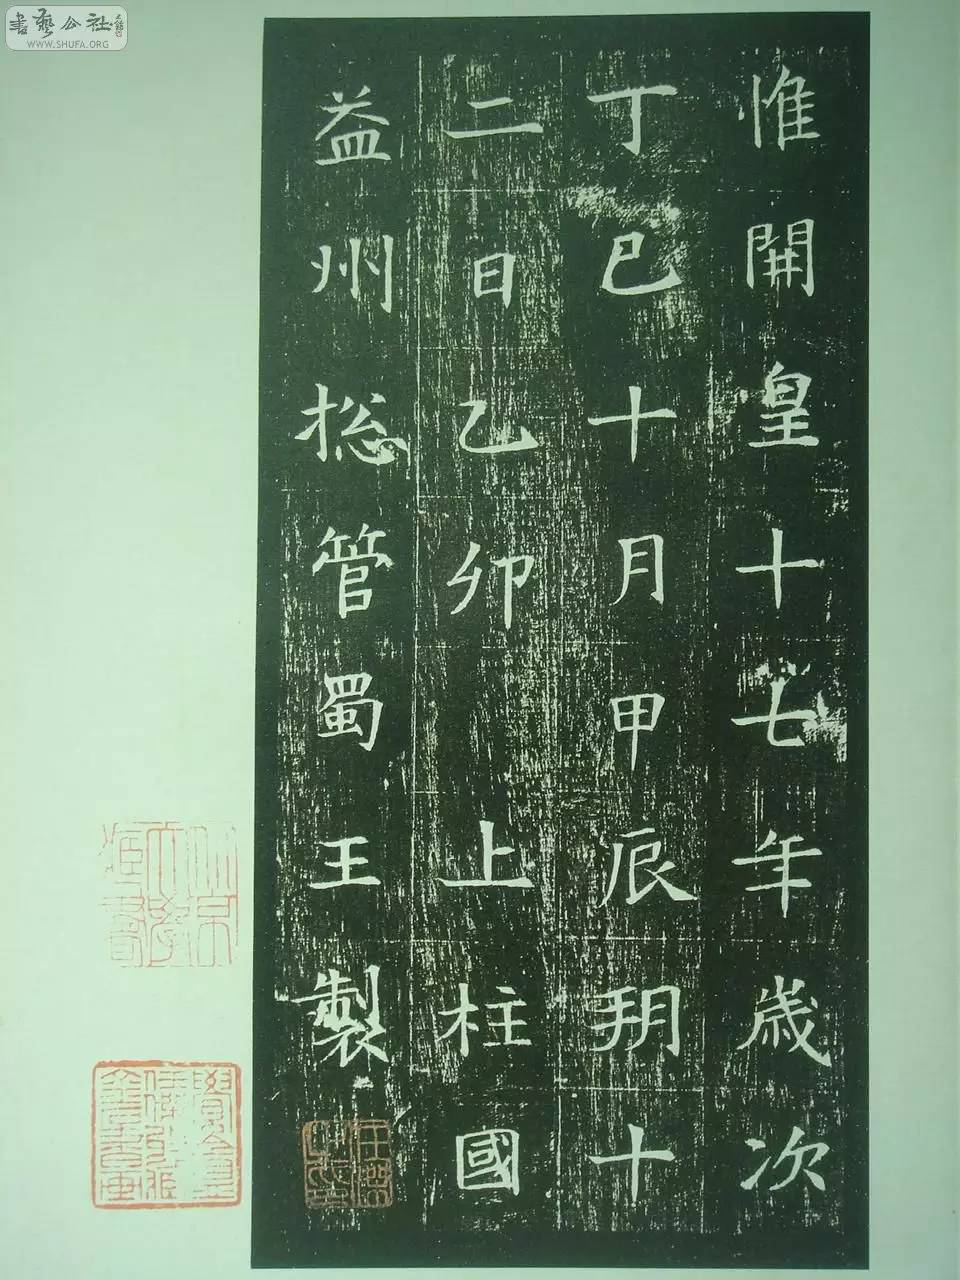 惟開皇十七年歲次
丁巳十月甲辰朔十
二日乙卯 上柱國
益州摠管蜀王製
書藝公社
WWW.SHUFA.ORG